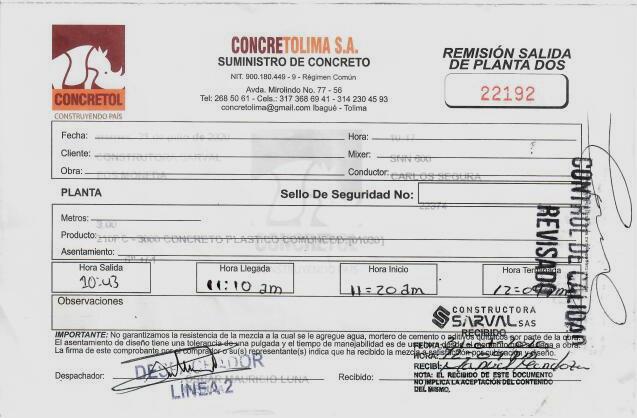 CONCRETOL
CONSTRUYENDO PAÍS
CONCRETOLIMA S.A.
SUMINISTRO DE CONCRETO
NIT. 900.180.449 - 9 - Régimen Común
Avda. Mirolindo No. 77 - 56
Tel: 268 50 61 - Cels.: 317 368 69 41 - 314 230 45 93
concretolima@gmail.com Ibagué - Tolima
REMISIÓN SALIDA
DE PLANTA DOS
22192
Fecha:
Hora: 10:17
Cliente: CONSTRUTORA SARVAL
Mixer: SNN 800
Obra:
Conductor: CARLOS SEGURA
PLANTA
Sello De Seguridad No:
Metros: 3.00
Producto: 210PC - 3000 CONCRETO PLASTICO COMUN
Asentamiento:
Hora Salida
10:43
Hora Llegada
11:10 am
Hora Inicio
11:20 am
Hora Terminada
CONTROL DE CALIDAD
REVISADO
Observaciones
CONSTRUCTORA
SARVAL SAS
RECIBIDO
IMPORTANTE: No garantizamos la resistencia de la mezcla a la cual se le agregue agua, mortero de cemento o aditivos químicos por parte de la obra.
El asentamiento de diseño tiene una tolerancia de una pulgada y el tiempo de manejabilidad es de
La firma de este comprobante por el comprador o su(s) representante(s) indica que ha recibido la mezcla a satisfacción
FECHA:
HORA:
RECIBI:
Despachador:
DESPACHADOR
LINEA 2
MAURICIO LUNA
Recibido:
NOTA: EL RECIBIDO DE ESTE DOCUMENTO
NO IMPLICA LA ACEPTACIÓN DEL CONTENIDO
DEL MISMO.